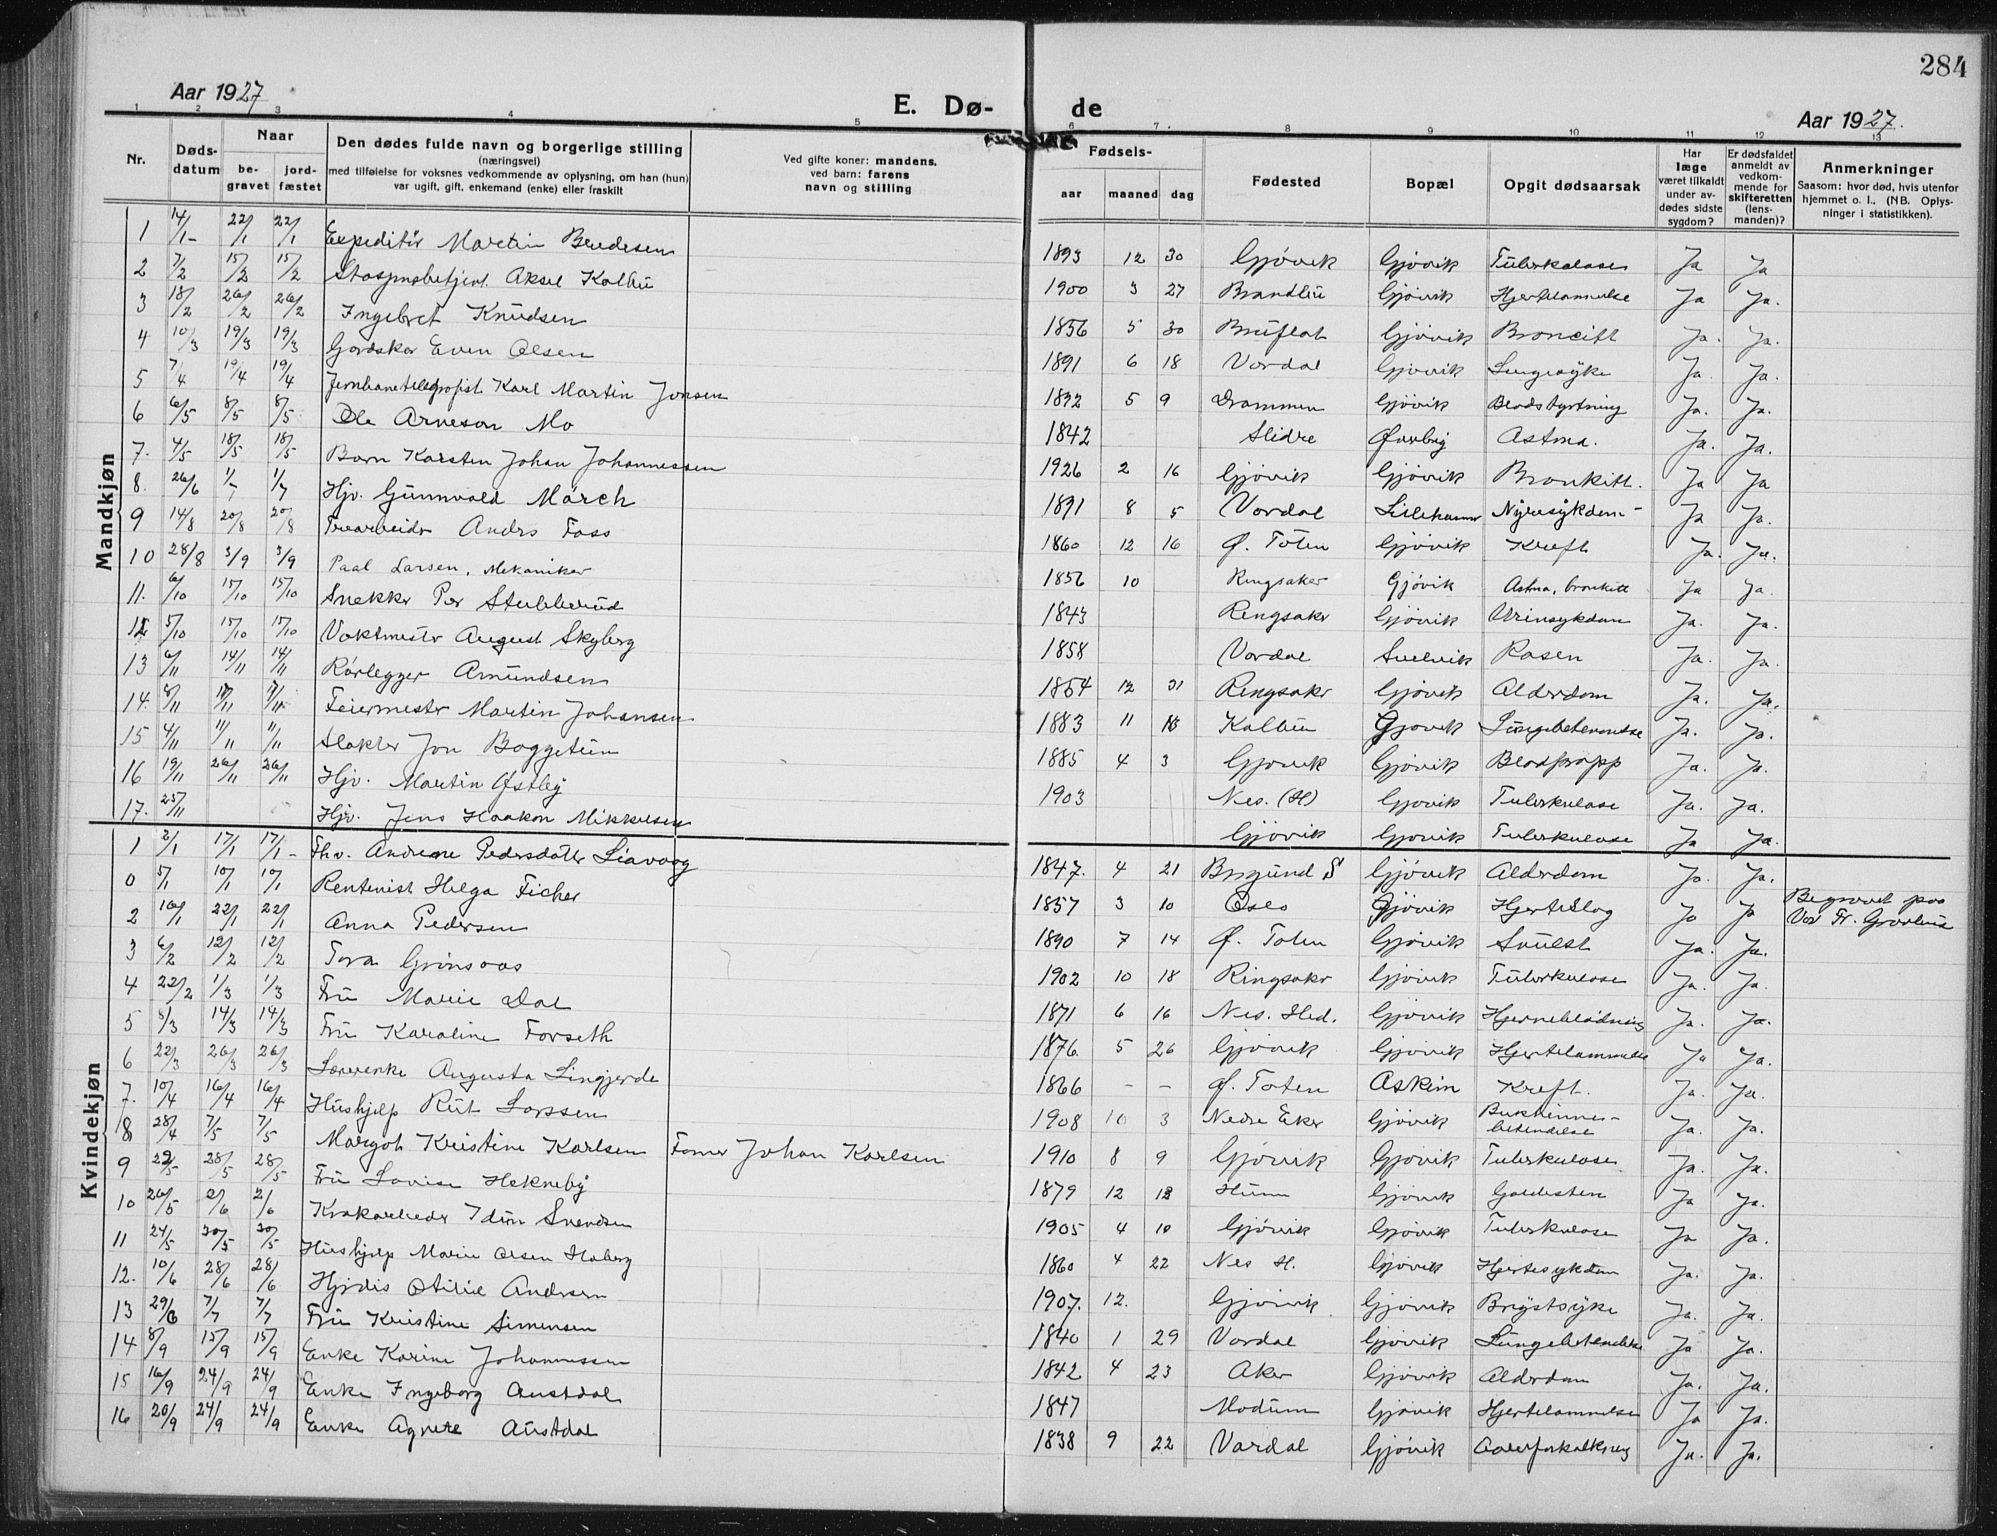 284
Aar 1927
E. Dø-
de
Aar 1927.
1 2 3 4 5 6 7. 8 9 10 11 12 13
Nr.
Døds-
datum
Naar
be-
gravet
jord-
fæstet
Den dødes fulde navn og borgerlige stilling
(næringsvei)
med tilføielse for voksnes vedkommende av oplysning, om han (hun)
var ugift, gift, enkemand (enke) eller fraskilt
Ved gifte koner: mandens.
ved barn: farens
navn og stilling
Fødsels-
aar maaned dag
Fødested
Bopæl
Opgit dødsaarsak
Har
læge
været tilkaldt
under av-
dødes sidste
sygdom?
Er dødsfaldet
anmeldt av
vedkom-
mende for
skifteretten
(lens-
manden)?
Anmerkninger
Saasom: hvor død, hvis utenfor
hjemmet o. l., (NB. Oplys-
ninger i statistikken).
Mandkjøn
1 14/1- 22/1 22/1 Expeditør Martin Bredesen 1893 12 30 Gjövik Gjövik Tuberkulose Ja Ja
2 7/2 15/2 15/2 Aksel Kolbu 1900 3 27 Brandbu Gjövik Hjertelammelse Ja Ja.
3 18/2 26/2 26/2 Ingebret Knudsen 1856 5 30 Bruflat Gjövik Broncitt Ja. Ja.
4 10/3 19/3 19/3 Gardsker Even Olsen 1891 6 18 Vardal Gjövik Lungesyke Ja. Ja.
5 7/4 19/4 19/4 Jernbanetelegrafist Karl Martin Jonsen 1832 5 9 Drammen Gjövik Blodstyrtning Ja. Ja.
6 6/5 8/5 8/5 Ole Arneson Mo 1842 Slidre Øverby Astma. Ja. Ja.
7. 4/5 18/5 18/5 Barn Karsten Johan Johannessen 1926 2 16 Gjövik Gjövik Bronkitt. Ja Ja
8. 26/6 1/7 1/7 Hjv. Gunnvald Mörch 1891 8 5 Vardal Lillehamr Nyresykdom- Ja Ja.
9 14/8 20/8 20/8 Trearbeidr Andrs Foss 1860 12 16 Ø. Toten Gjövik Kreft Ja. Ja.
10 28/8 3/9 3/9 Paal Larsen, Mekaniker 1856 10 Ringsaker Gjövik Astma, bronkitt Ja Ja.
11. 6/10 15/10 15/10 Snekker Per Stubberud 1843 Ringsakr Gjövik Urinsykdom Ja. Ja.
12 5/10 15/10 15/10 Vaktmestr August Skyberg 1858 Vardal Svelvik Rosen Ja. Ja.
13 6/11 14/11 14/11 Rörlegger Amundsen 1854 12 31 Ringsakr Gjövik Alderdom Ja. Ja.
14. 8/11 Feiermestr Martin Johansen 1883 11 18 Kolbu Gjövik Lungebetennelse Ja. Ja.
15 4/11 11/11 11/11 Slakter Jon Baggetun 1885 4 3 Gjövik Gjövik Blodpropp Ja. Ja.
16 19/11 26/11 26/11 Hjv. Martin Østby 1903 Nes. (H) Gjövik Tuberkulose Ja. Ja.
17. 25/11 Hjv. Jens Haakon Mikkelsen Gjövik Gjövik Tuberkulose Ja Ja.
Kvindekjøn
1 2/1 17/1 17/1- Fhv. Andrene Pedersdatter Liavaag 1847. 4 21 Borgund S Gjövik Alderdom Ja. Ja.
0 5/1 10/1 10/1 Rentenist Helga Ficher 1857 3 10 Oslo Gjövik Hjerteslag Ja Ja Begravet paa
Vor Fr. Gravlund
2 16/1 22/1 22/1 Anna Pedersen 1890 7 14 Ø. Toten Gjövik Svulst Ja. Ja.
3 6/2 12/2 12/2 Tora Grönsaas 1902 10 18 Ringsakr Gjövik Tuberkulose Ja. Ja.
4 22/2 1/3 1/3 Fru Marie Dal 1871 6 16 Nes. Hed. Gjövik Hjerneblödning Ja. Ja.
5 8/3 14/3 14/3 Fru Karoline Forseth 1876. 5 26 Gjövik Gjövik Hjertelammelse Ja Ja.
6 22/3 26/3 26/3 Augusta Lingjerde 1866 - - Ø. Toten Askim Kreft. Ja. Ja.
7. 10/4 16/4 16/4 Hushjelp Rut Larssen 1908 10 3 Nedre Eker Gjövik Bukhinne-
betendelse Ja. Ja.
8 28/4 7/5 7/5 Margot Kristine Karlsen Johan Karlsen 1910 8 9 Gjövik Gjövik Tuberkulose Ja. Ja.
9 22/5 28/5 28/5 Fru Lovise Hekneby 1879 12 12 Hunn Gjövik Galdesten Ja Ja.
10 26/5 2/6 2/6 Idun Svendsen 1905 4 10 Gjövik Gjövik Tuberkulose Ja Ja.
11 24/5 30/5 30/5 Hushjelp Marie Olsen Haberg 1860 4 22 Nes H. Gjövik Hjertesykdom Ja. Ja.
12. 10/6 28/6 28/6 Hjördis Otilie Andersen 1907. 12. Gjövik Gjövik Brystsyke Ja. Ja.
13 29/6 7/7 7/7 Fru Kristine Simensen 1840 1 29 Vardal Gjövik Lungebetendelse Ja Ja.
14 8/9 15/9 15/9 Enke Karine Johannessen 1842 4 23 Aker Gjövik Alderdom Ja. Ja.
15 16/9 24/9 24/9 Enke Ingeborg Austdal 1847 Modum Gjövik Hjertelammelse Ja Ja.
16 20/9 24/9 24/9 Enke Agnete Austdal 1838 9 22 Vardal Gjövik Aareforkalkning Ja. Ja.